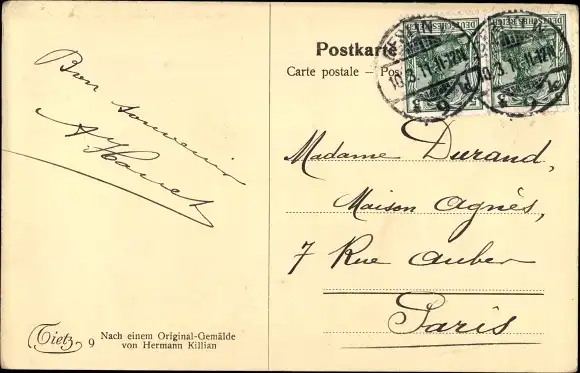 Bon souvenir
Postkarte
Carte postale – Pos
DEUTSCHES REICH
DEUTSCHES REICH
BERLIN
W
10.3.11.11-12N.
10.3.11.11-12N.
Madame Durand,
Maison Agnès,
7 Rue Auber
Paris
Tietz 9
Nach einem Original-Gemälde
von Hermann Killian